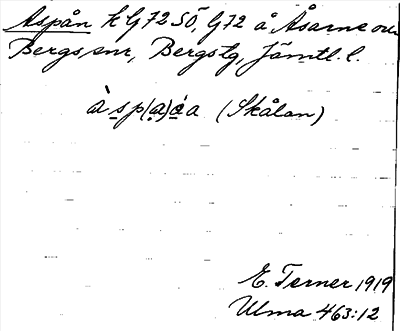 Aspån k G 72 SÖ, G 72 å Åsarne och
Bergs snr, Bergs tg, Jämtl. l.
àsp(a)áa (Skålan)
E. Terner 1919
Ulma 463:12